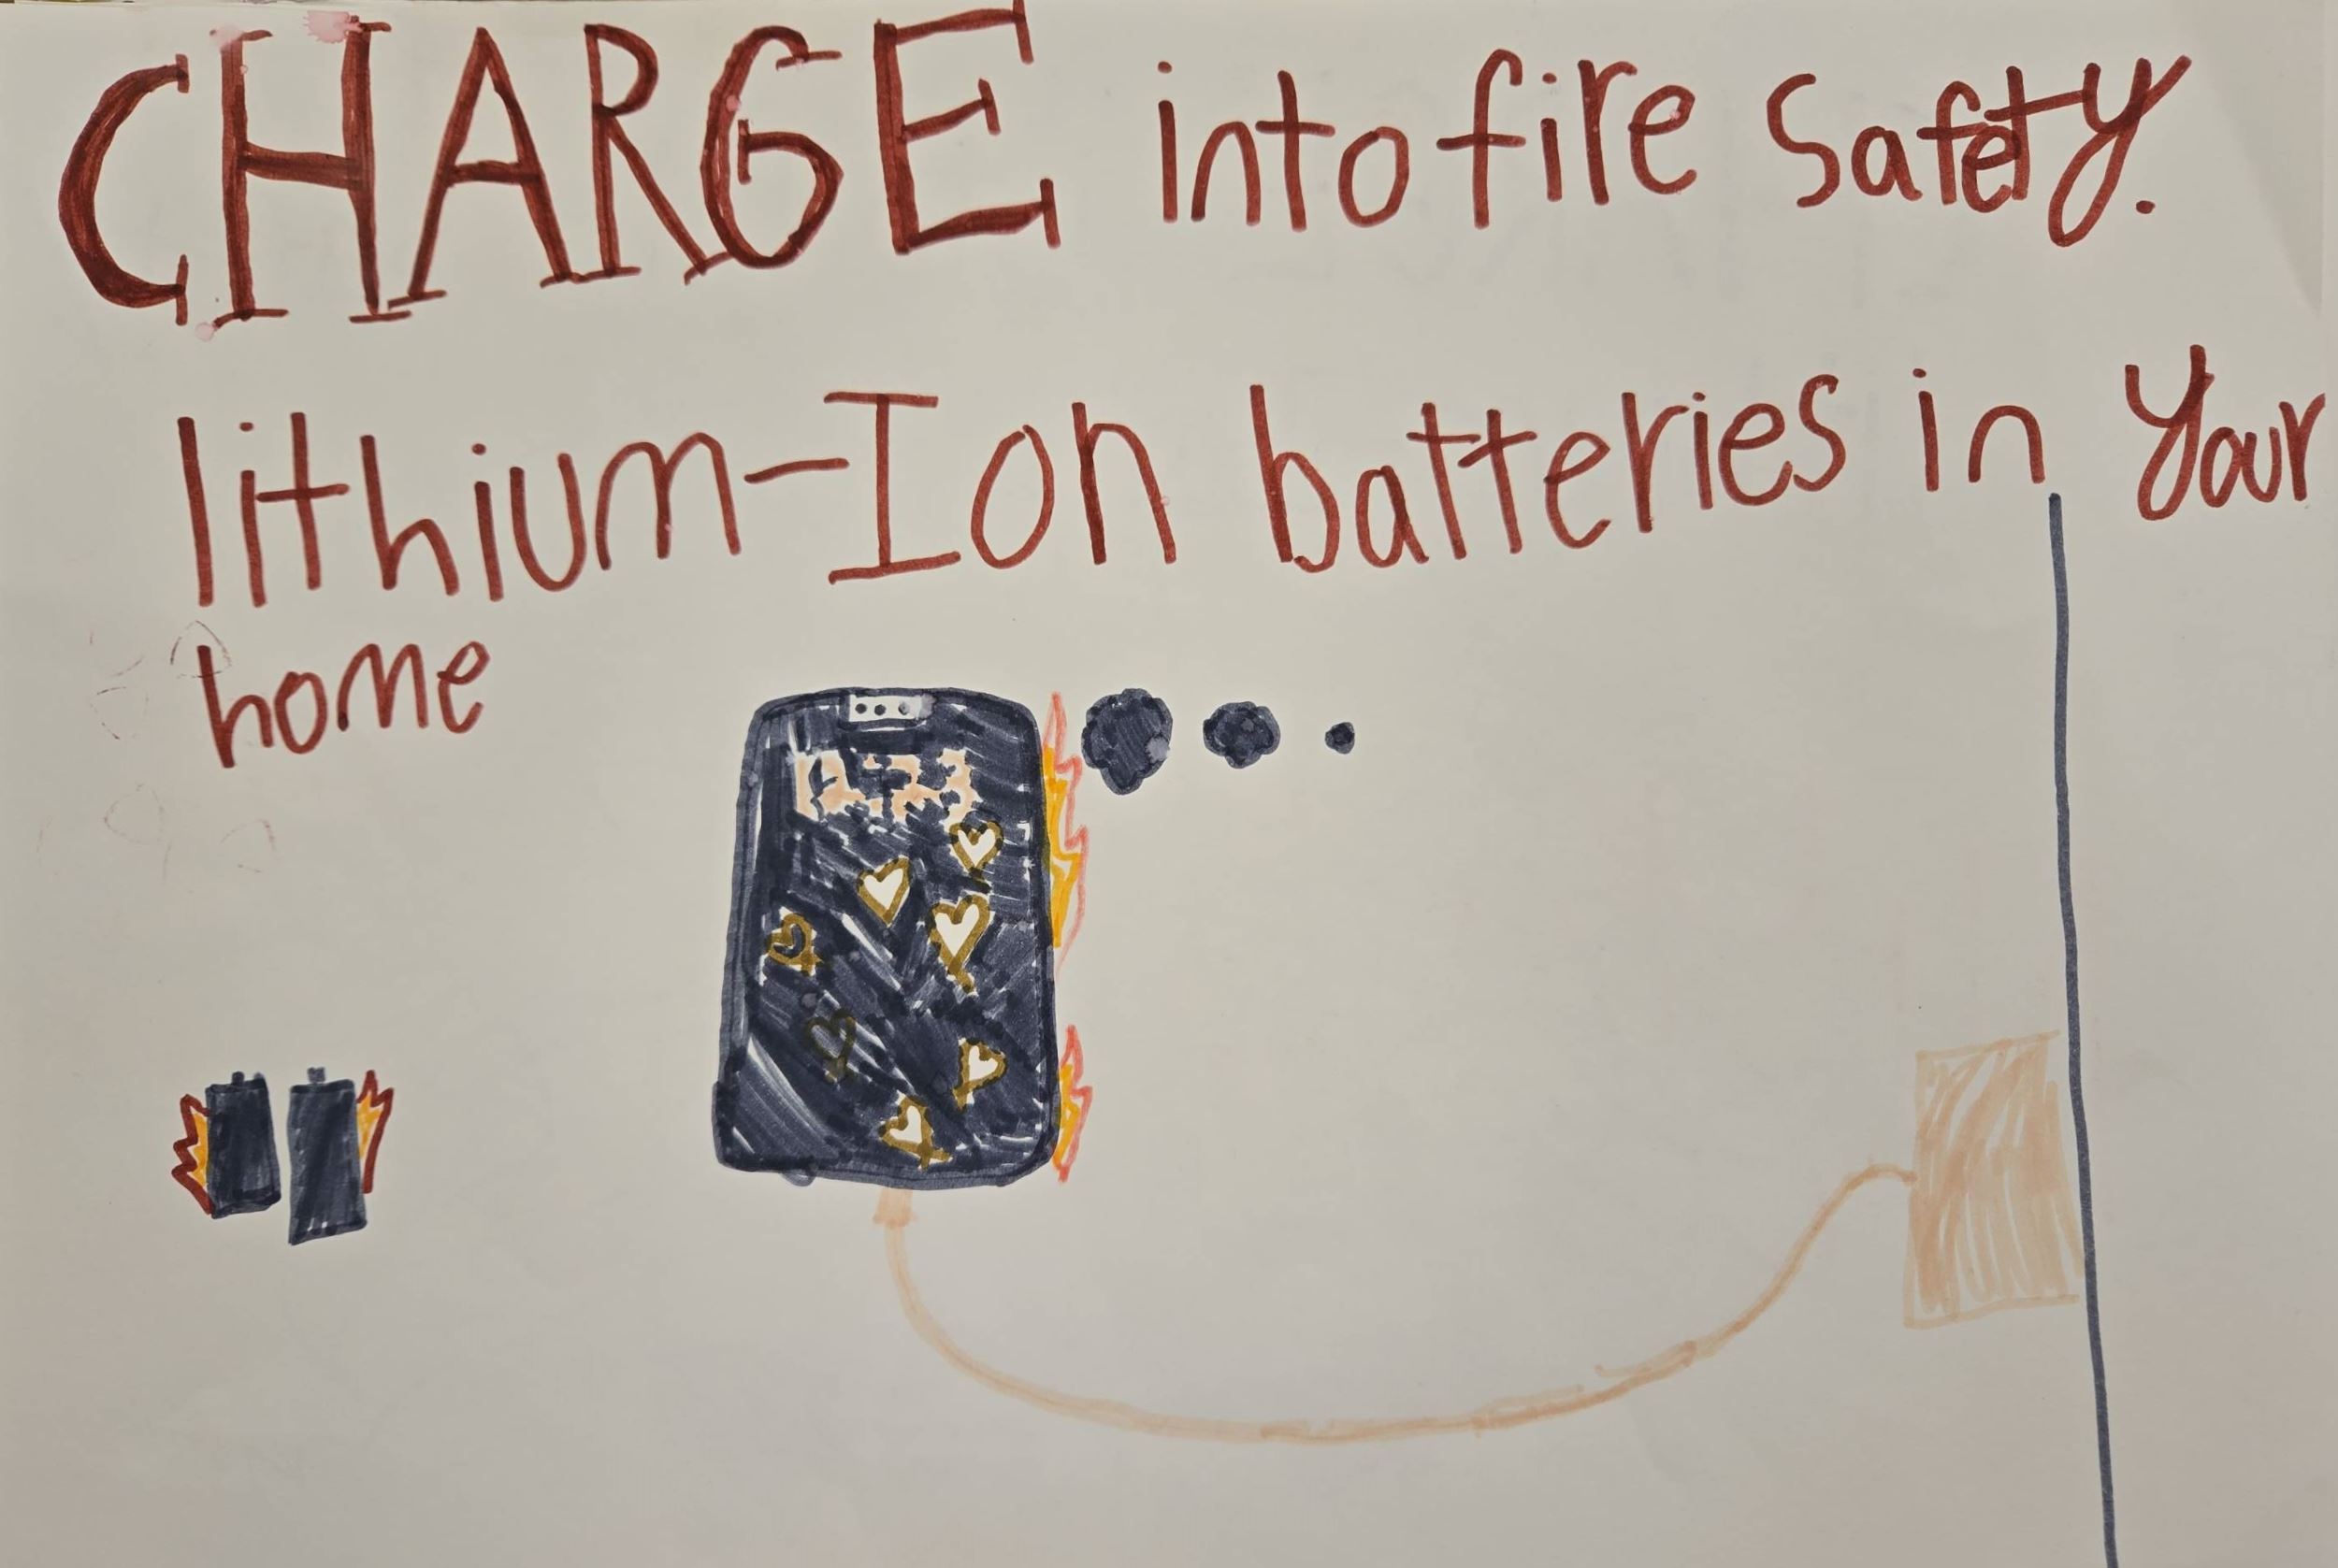 CHARGE into fire Safety.
lithium-Ion batteries in your
home
12:23